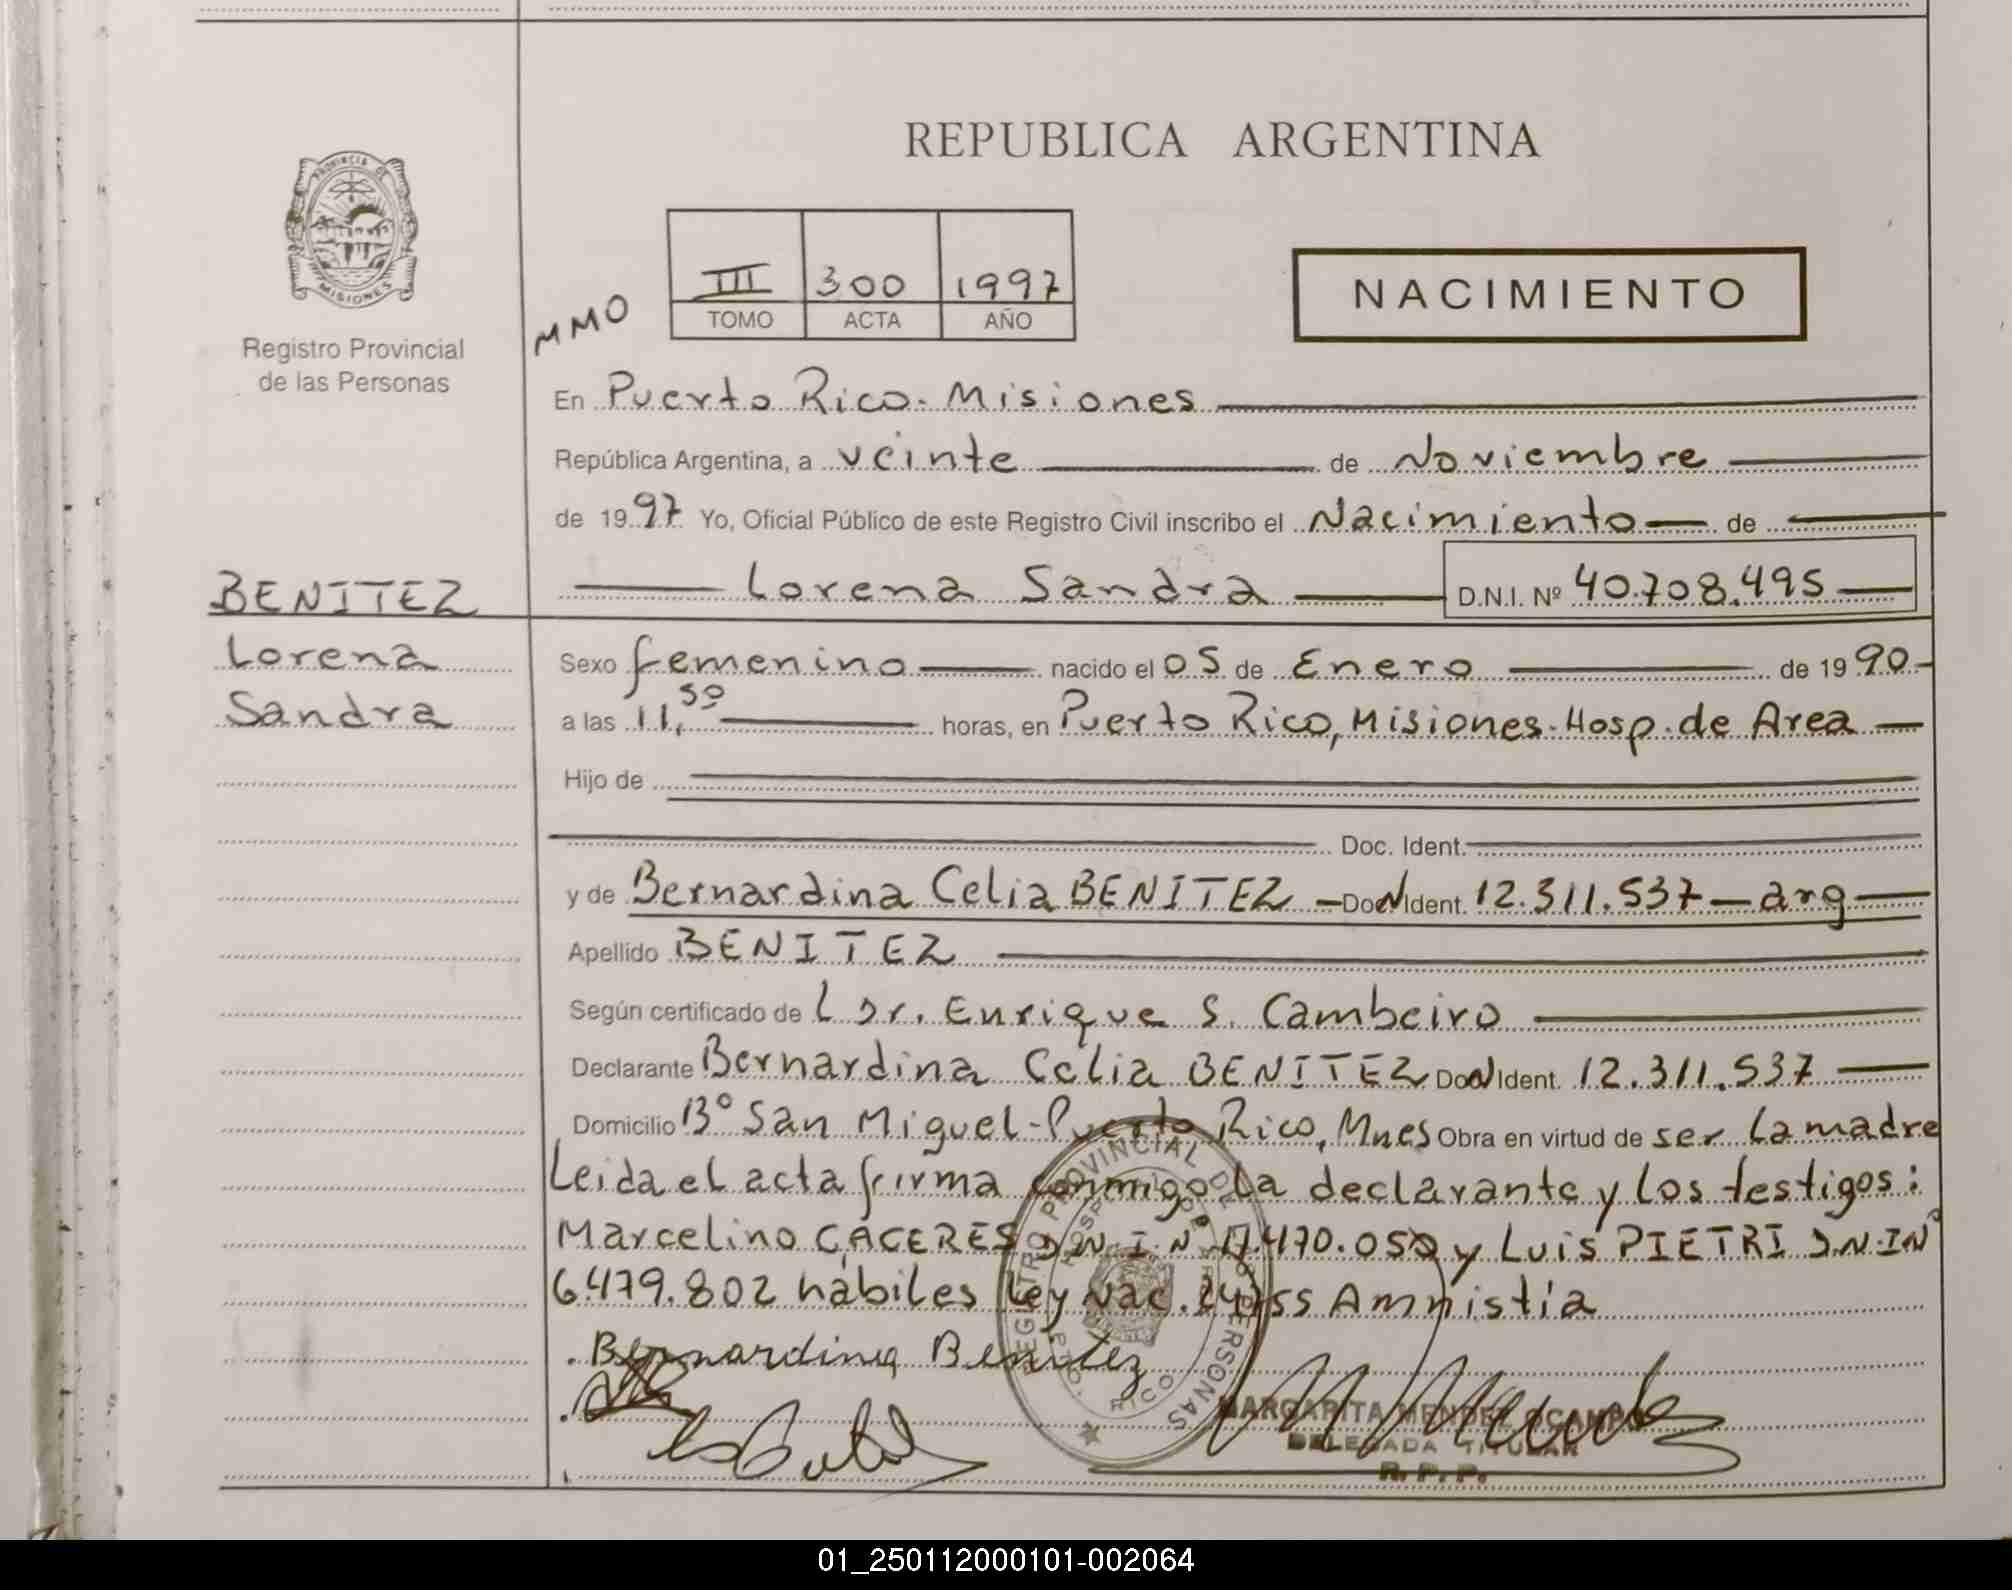 REPUBLICA ARGENTINA
PROVINCIA DE
MISIONES
Registro Provincial
de las Personas
MMO
III 300 1997
TOMO ACTA AÑO
NACIMIENTO
En Puerto Rico. Misiones
República Argentina, a veinte de Noviembre
de 1997 Yo, Oficial Público de este Registro Civil inscribo el Nacimiento de
BENITEZ
Lorena
Sandra
Lorena Sandra D.N.I. Nº 40.708.495
Sexo femenino nacido el 05 de Enero de 1990
a las 11,50 horas, en Puerto Rico, Misiones. Hosp. de Area
Hijo de
Doc. Ident.
y de Bernardina Celia BENITEZ Doc. Ident. 12.311.537 arg
Apellido BENITEZ
Según certificado de Dr. Enrique S. Cambeiro
Declarante Bernardina Celia BENITEZ Doc. Ident. 12.311.537
Domicilio Bº San Miguel - Puerto Rico, Mnes Obra en virtud de ser la madre
Leida el acta firma conmigo la declarante y los testigos:
Marcelino CÁCERES D.N.I. Nº 17.470.050 y Luis PIETRI D.N.I Nº
6.479.802 hábiles Ley Nac. Amnistía
Bernardina Benitez
REGISTRO PROVINCIAL DE LAS PERSONAS
PTO. RICO
MARGARITA MENDEZ OCAMPO
DELEGADA TITULAR
R.P.P.
01_250112000101-002064